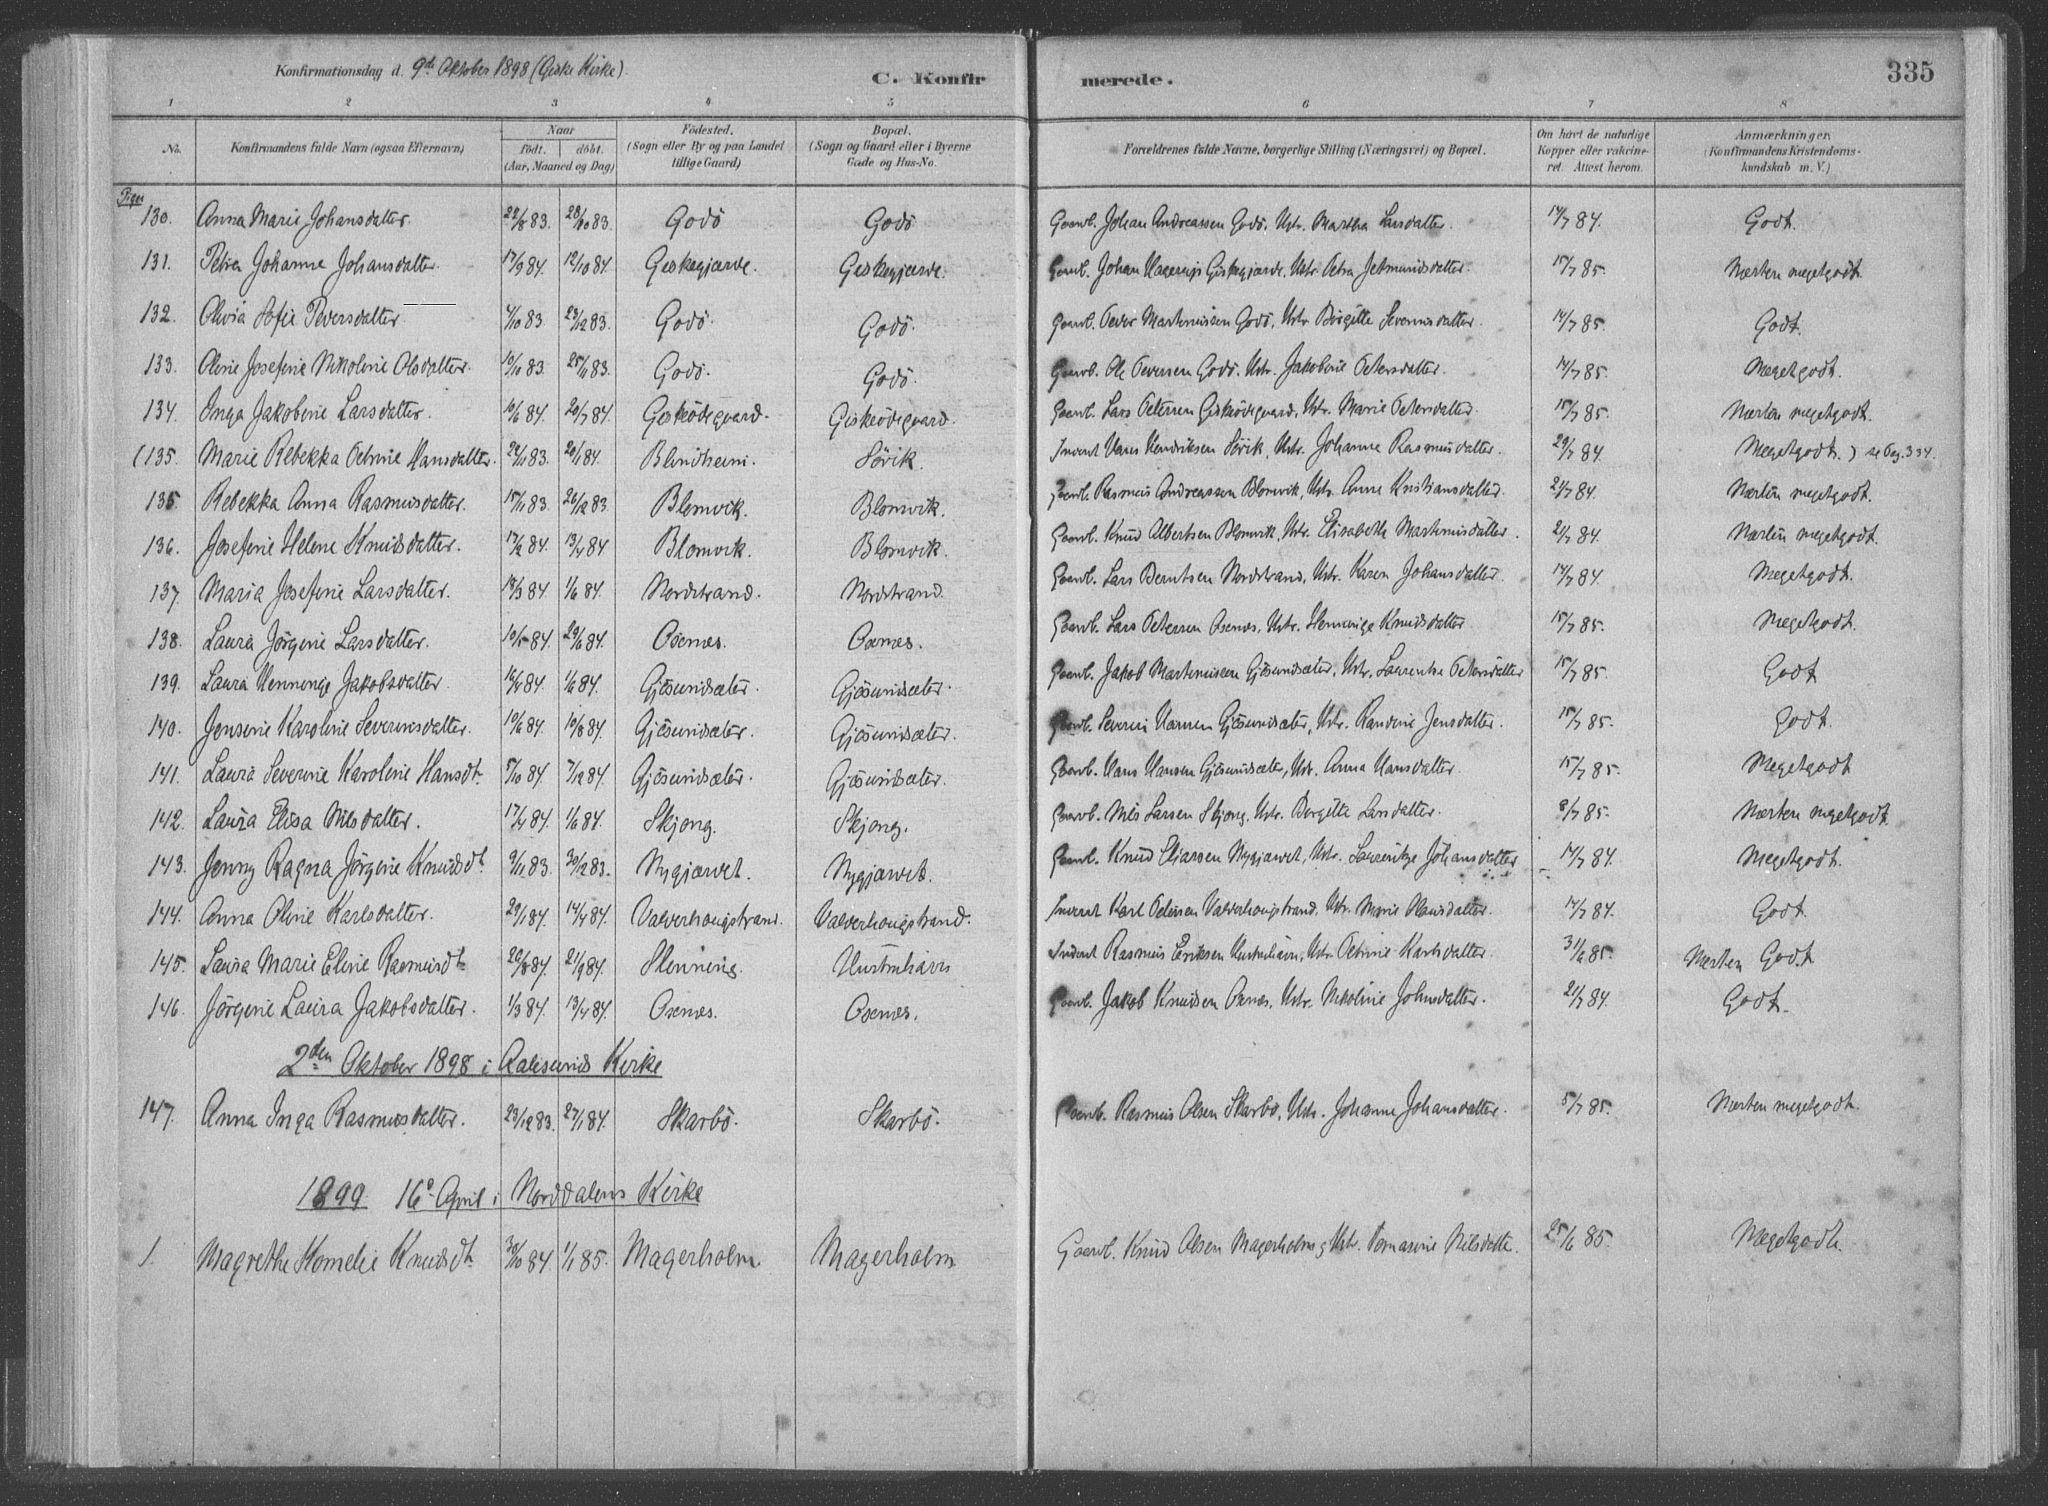 Konfirmationsdag d. 9de Oktober 1898 (Giske Kirke).
C. Konfir merede. 335
1 2 3 4 5 6 7 8
No. Konfirmandens fulde Navn (ogsaa Efternavn) Naar født. døbt. (Aar, Maaned og Dag) Fødested. (Sogn eller By og paa Landet tillige Gaard) Bopæl. (Sogn og Gaard eller i Byerne Gade og Hus-No. Forældrenes fulde Navne, borgerlige Stilling (Næringsvei) og Bopæl. Om havt de naturlige Kopper eller vakcineret. Attest herom. Anmærkninger. (Konfirmandens Kristendomskundskab m. V.)
Piger
130. Anna Marie Johansdatter. 22/8 83. 28/10 83. Godö Godö Gaarb. Johan Andreassen Godö, Ustr. Martha Larsdatter. 14/7 84. Godt.
131. Petra Johanne Johansdatter. 17/9 84. 12/10 84. Giskegjærde. Giskegjærde. Gaarb. Johan Giskegjærde, Ustr. Petra Jetmundsdatter. 15/7 85. Næsten megetgodt.
132. Olivia Sofie Peversdatter 4/10 83. 23/12 83. Godö. Godö. Gaarb. Pever Martinussen Godö, Ustr. Birgitte Severinsdatter. 14/7 85. Godt.
133. Oline Josefine Nikoline Olsdatter. 10/10 83. 25/11 83. Godö. Godö. Gaarb. Ole Peversen Godö. Ustr. Jakobine Petersdatter. 14/7 85. Megetgodt.
134. Inga Jakobine Larsdatter. 10/6 84. 20/7 84. Giskeödegaard. Giskeödegaard. Gaarb. Lars Petersen Giskeödegaard, Ustr. Marie Petersdatter. 15/7 85. Næsten megetgodt.
(135. Marie Rebekka Petrine Hansdatter. 22/11 83. 20/1 84. Blindheim. Sörik. Inderst Hans Hendriksen Sörik, Ustr. Johanne Rasmusdatter. 29/7 84 Megetgodt.) se Pag. 334.
135 Rebekka Anna Rasmusdatter. 15/11 83. 26/12 83 Blomvik. Blomvik. Gaarb. Rasmus Andreassen Blomvik, Ustr. Anne Kristiansdatter. 21/7 84. Næsten megetgodt.
136. Josefine Helene Knudsdatter. 17/2 84. 13/4 84 Blomvik. Blomvik. Gaarb. Knud Albertsen Blomvik, Ustr. Elisabeth Martinusdatter. 21/7 84. Næsten megetgodt.
137. Maria Josefine Larsdatter. 18/3 84 1/6 84. Nordstrand. Nordstrand. Gaarb. Lars Berntsen Nordstrand, Ustr. Karen Johansdatter. 14/7 84. Megetgodt.
138. Laura Jörgine Larsdatter. 10/5 84 29/6 84. Osenæs. Osenæs. Gaarb. Lars Petersen Osenæs, Ustr. Henninge Knudsdatter 15/7 85. Megetgodt.
139. Laura Henninge Jakobsdatter 16/4 84. 1/6 84. Gjösundsæter. Gjösundsæter. Gaarb. Jakob Martinussen Gjösundsæter, Ustr. Laurentse Petersdatter 15/7 85. Godt
140. Jensine Karoline Severinsdatter. 10/6 84. 10/8 84. Gjösundsæter. Gjösundsæter. Gaarb. Severin Hansen Gjösundsæter, Ustr. Randine Jensdatter. 15/7 85. Godt.
141. Laura Severine Karoline Hansdt. 5/10 84 7/12 84. Gjösundsæter. Gjösundsæter. Gaarb. Hans Hansen Gjösundsæter, Ustr. Anna Hansdatter. 15/7 85. Megetgodt
142. Laura Elisa Nilsdatter. 17/4 84. 1/6 84. Skjong. Skjong. Gaarb. Nils Larsen Skjong, Ustr. Birgitte Larsdatter. 8/7 85. Næsten megetgodt.
143. Jenny Ragna Jörgine Knudsdt. 9/11 83. 30/12 83. Nygjærdet. Nygjærdet. Gaarb. Knud Eliassen Nygjærdet, Ustr. Johansdatter 14/7 84. Megetgodt.
144. Anna Oline Karlsdatter. 29/1 84. 14/4 84. Valderhaugstrand. Valderhaugstrand. Inderst Karl Petersen Valderhaugstrand, Ustr. Marie Hansdatter. 14/7 84. Godt.
145. Laura Marie Eline Rasmusdt 20/8 84. 21/9 84. Slinning. Hustruhavn Inderst Rasmus Eriksen Hustruhavn, Ustr. Petrine Karlsdatter. 31/6 85. Næsten Godt
146. Jörgine Laura Jakobsdatter. 1/3 84. 13/4 84. Osenæs. Osenæs. Gaarb. Jakob Knudsen Osenæs, Ustr. Nikoline Johnsdatter. 21/7 84. Godt.
2den Oktober 1898 i Aalesunds Kirke
147. Anna Inga Rasmusdatter. 23/12 83. 27/1 84. Skarbö. Skarbö. Gaarb. Rasmus Olsen Skarbö, Ustr. Johanne Johansdatter. 5/7 85. Næsten megetgodt.
1899 16o April i Norddalens Kirke
1. Magrethe Kornelie Knudsdt. 30/10 84. 1/1 85. Magerholm Magerholm Gaarb. Knud Olsen Magerholm og Ustr. Tomasine Nilsdatte. 25/6 85. Megetgodt.